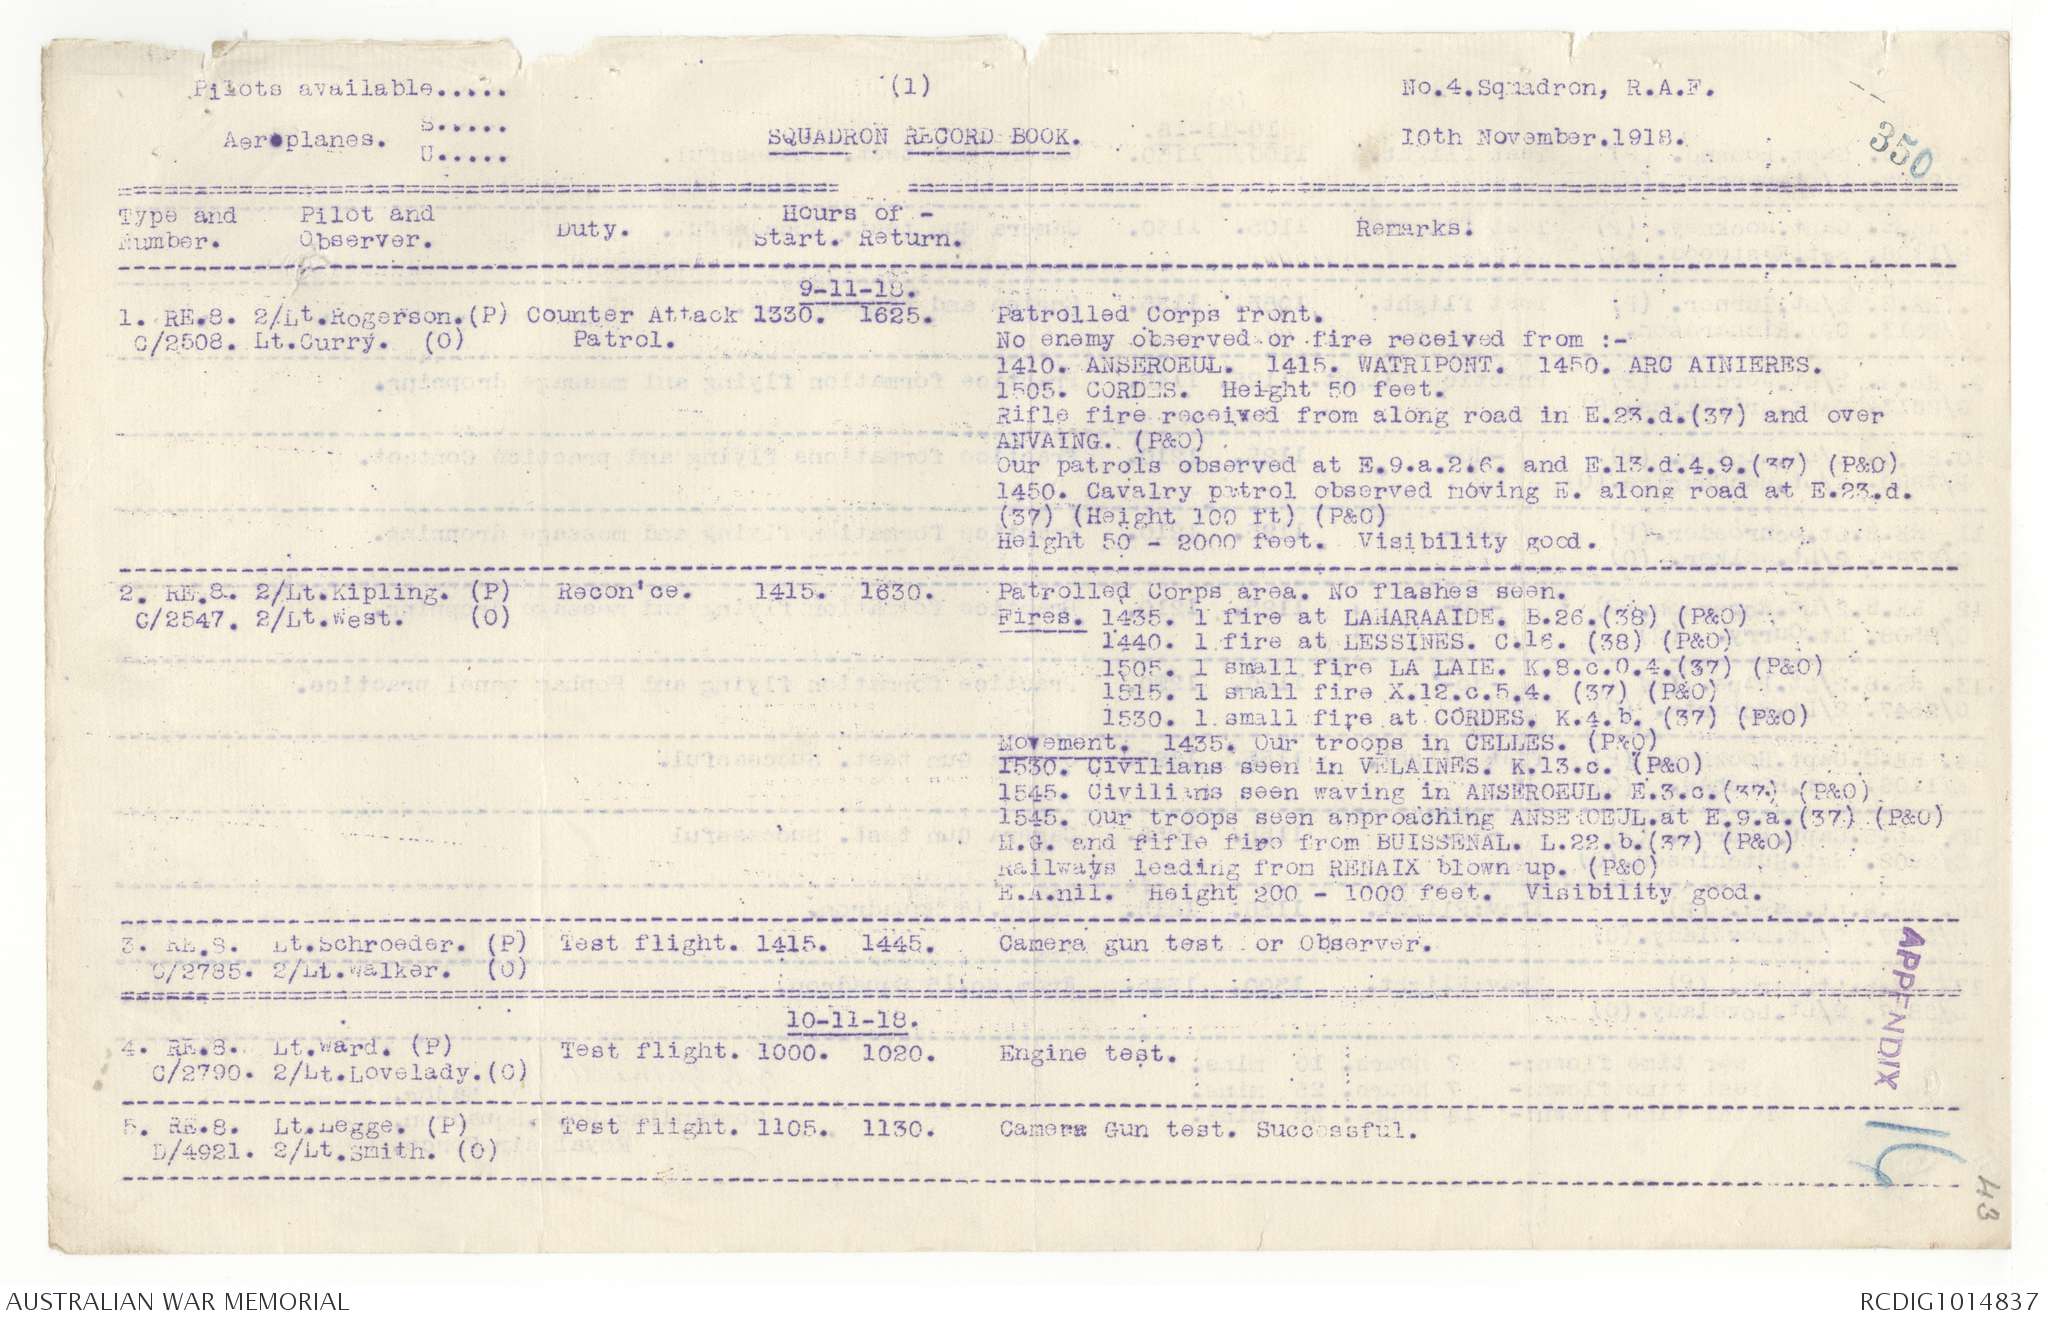 Pilots available.....
(1)
No.4.Squadron, R.A.F.
Aeroplanes. S.....
U.....
SQUADRON RECORD BOOK.
10th November.1918.
350
Type and Number.
Pilot and Observer.
Duty.
Hours of -
Start. Return.
Remarks.
9-11-18.
1. RE.8. 2/Lt.Rogerson.(P) Counter Attack 1330. 1625. Patrolled Corps front.
C/2508. Lt.Curry. (O) Patrol. No enemy observed or fire received from :-
1410. ANSEROEUL. 1415. WATRIPONT. 1450. ARC AINIERES.
1505. CORDES. Height 50 feet.
Rifle fire received from along road in E.23.d.(37) and over
ANVAING. (P&O)
Our patrols observed at E.9.a.2.6. and E.13.d.4.9.(37) (P&O)
1450. Cavalry patrol observed moving E. along road at E.23.d.
(37) (Height 100 ft) (P&O)
Height 50 - 2000 feet. Visibility good.
2. RE.8. 2/Lt.Kipling. (P) Recon'ce. 1415. 1630. Patrolled Corps area. No flashes seen.
C/2547. 2/Lt.West. (O) Fires. 1435. 1 fire at LAHARAAIDE. B.26.(38) (P&O)
1440. 1 fire at LESSINES. C.16. (38) (P&O)
1505. 1 small fire LA LAIE. K.8.c.0.4.(37) (P&O)
1515. 1 small fire X.12.c.5.4. (37) (P&O)
1530. 1 small fire at CORDES. K.4.b. (37) (P&O)
Movement. 1435. Our troops in CELLES. (P&O)
1530. Civilians seen in VELAINES. K.13.c. (P&O)
1545. Civilians seen waving in ANSEROEUL. E.3.c.(37) (P&O)
1545. Our troops seen approaching ANSEROEUL.at E.9.a.(37) (P&O)
M.G. and rifle fire from BUISSENAL. L.22.b.(37) (P&O)
Railways leading from RENAIX blown up. (P&O)
E.A.nil. Height 200 - 1000 feet. Visibility good.
3. RE.8. Lt.Schroeder. (P) Test flight. 1415. 1445. Camera gun test or Observer.
C/2785. 2/Lt.Walker. (O)
10-11-18.
4. RE.8. Lt.Ward. (P) Test flight. 1000. 1020. Engine test.
C/2790. 2/Lt.Lovelady.(O)
5. RE.8. Lt.Legge. (P) Test flight. 1105. 1130. Camera Gun test. Successful.
D/4921. 2/Lt.Smith. (O)
APPENDIX
16
43
AUSTRALIAN WAR MEMORIAL
RCDIG1014837